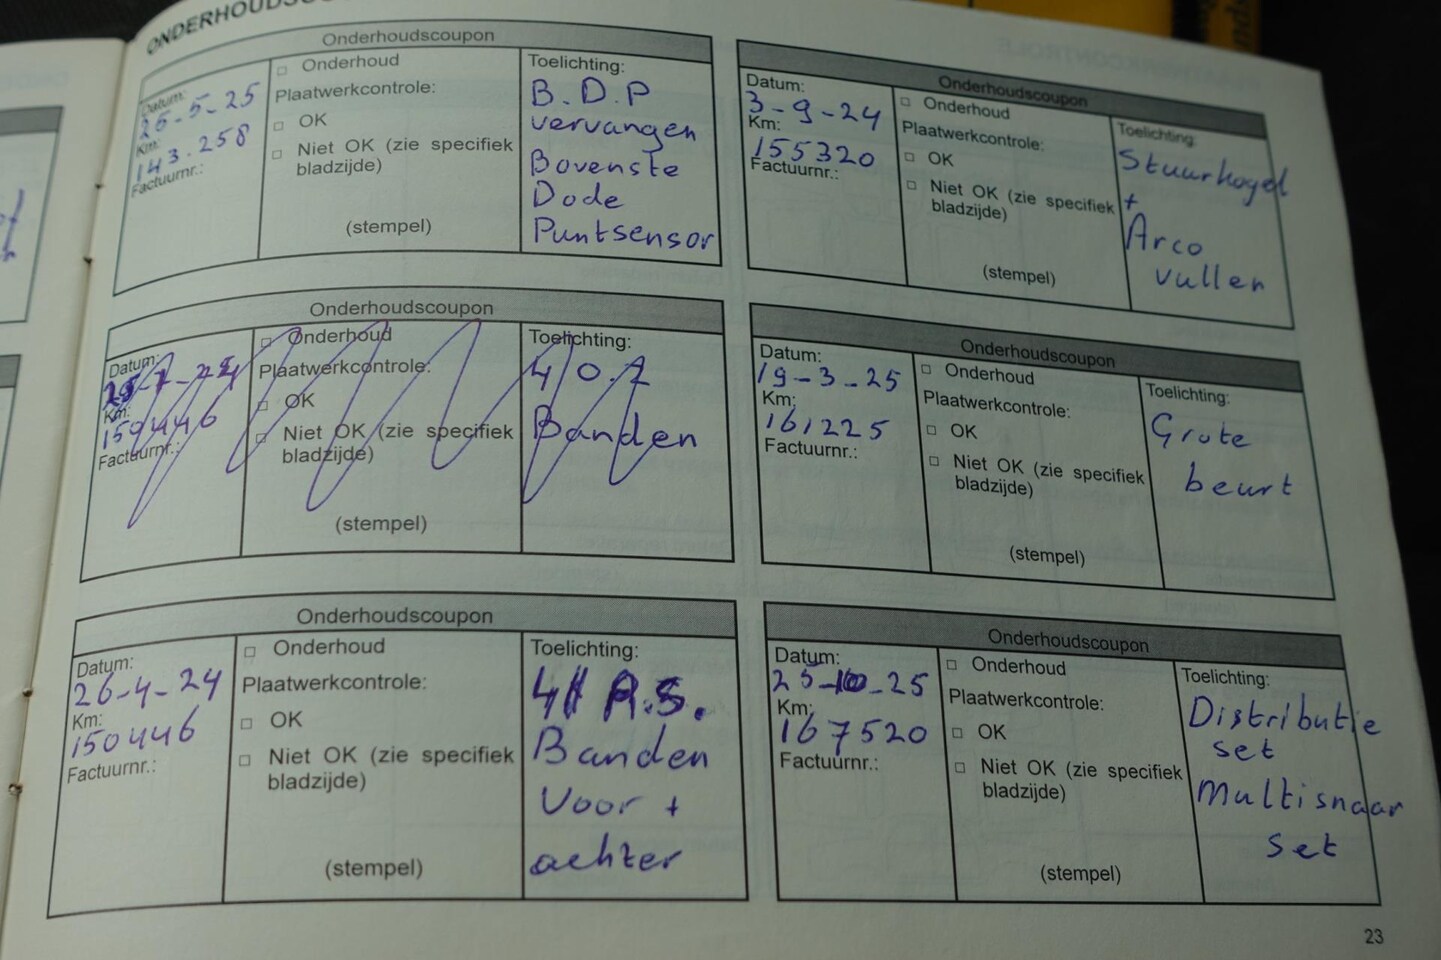 ONDERHOUDSCO
Onderhoudscoupon
Datum:
26-5-25
Km:
143.258
Factuurnr.:
□ Onderhoud
Plaatwerkcontrole:
□ OK
□ Niet OK (zie specifiek
bladzijde)
(stempel)
Toelichting:
B.D.P
vervangen
Bovenste
Dode
Puntsensor
Onderhoudscoupon
Datum:
Km:
150446
Factuurnr.:
□ Onderhoud
Plaatwerkcontrole:
□ OK
□ Niet OK (zie specifiek
bladzijde)
(stempel)
Toelichting:
4
Banden
Onderhoudscoupon
Datum:
26-4-24
Km:
150446
Factuurnr.:
□ Onderhoud
Plaatwerkcontrole:
□ OK
□ Niet OK (zie specifiek
bladzijde)
(stempel)
Toelichting:
4 A.S.
Banden
Voor +
achter
Onderhoudscoupon
Datum:
3-9-24
Km:
155320
Factuurnr.:
□ Onderhoud
Plaatwerkcontrole:
□ OK
□ Niet OK (zie specifiek
bladzijde)
(stempel)
Toelichting:
Stuurkogel
+
Arco
vullen
Onderhoudscoupon
Datum:
19-3-25
Km:
161225
Factuurnr.:
□ Onderhoud
Plaatwerkcontrole:
□ OK
□ Niet OK (zie specifiek
bladzijde)
(stempel)
Toelichting:
Grote
beurt
Onderhoudscoupon
Datum:
25-10-25
Km:
167520
Factuurnr.:
□ Onderhoud
Plaatwerkcontrole:
□ OK
□ Niet OK (zie specifiek
bladzijde)
(stempel)
Toelichting:
Distributie
set
Multisnaar
set
23